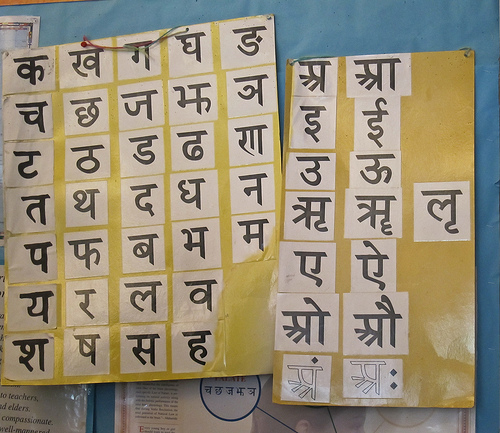 क ख ग घ ङ
च छ ज झ ञ
ट ठ ड ढ ण
त थ द ध न
प फ ब भ म
य र ल व
श ष स ह
अ आ
इ ई
उ ऊ
ऋ ॠ ऌ
ए ऐ
ओ औ
अं अः
to teachers,
nd elders.
compassionate.
well-mannered
च छ ज झ ञ